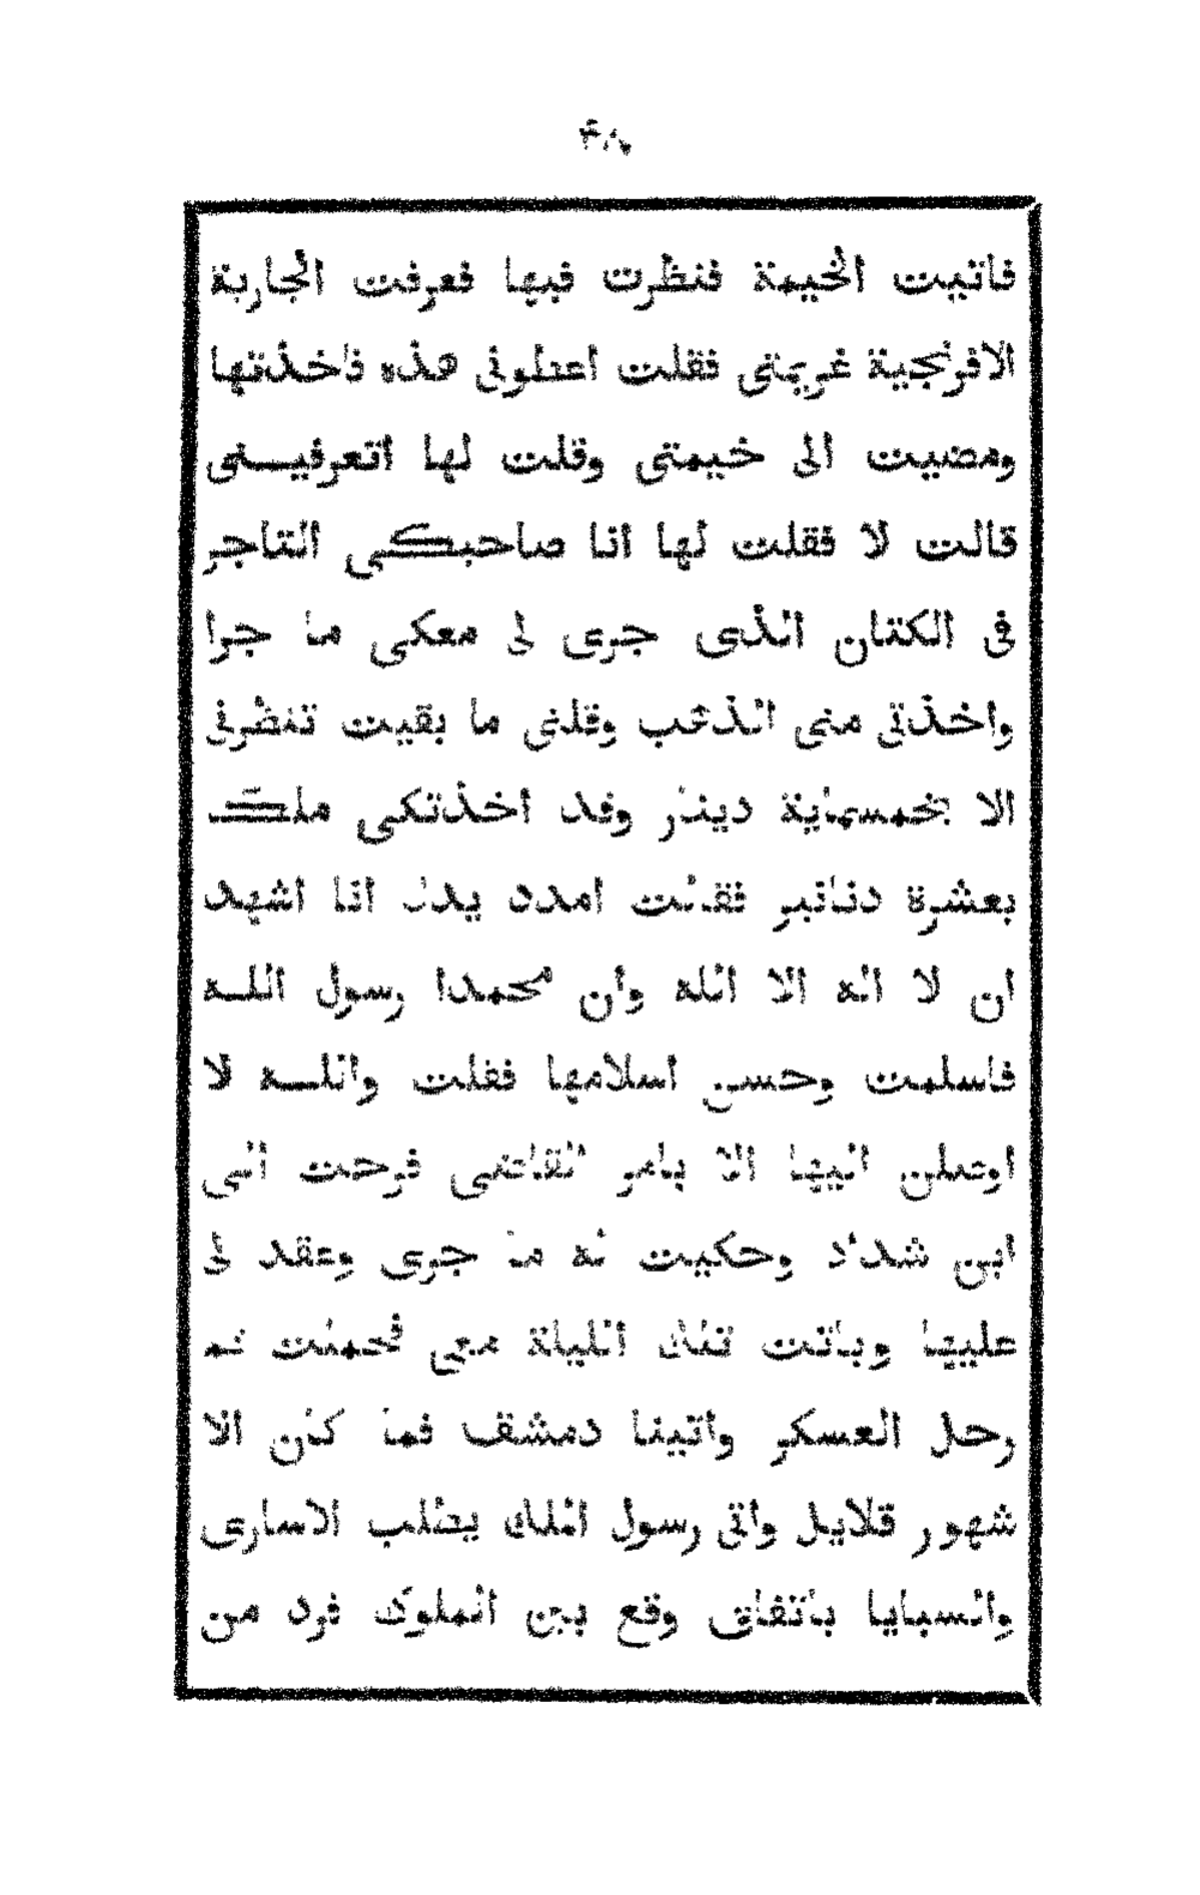 فاتيت الخيمة فنظرت فيها فعرفت الجارية
الافرنجية غريمتى فقلت اعطونى هذه فاخذتها
ومضيت الى خيمتى وقلت لها اتعرفينى
قالت لا فقلت لها انا صاحبكى التاجر
فى الكتان الذى جرى لى معكى ما جرا
واخذتى منى الذهب وقلتى ما بقيت تنظرنى
الا بخمسماية دينار وقد اخذتكى ملك
بعشرة دنانير فقالت امدد يدك انا اشهد
ان لا اله الا الله وان محمدا رسول الله
فاسلمت وحسن اسلامها فقلت والله لا
اوصلن اليها الا بامر القاضى فرحت الى
ابن شداد وحكيت له ما جرى وعقد لى
عليها وباتت تلك الليلة معى فحملت ثم
رحل العسكر واتينا دمشق فما كان الا
شهور قلايل واتى رسول الملك يطلب الاسارى
والسبايا باتفاق وقع بين الملوك فرد من